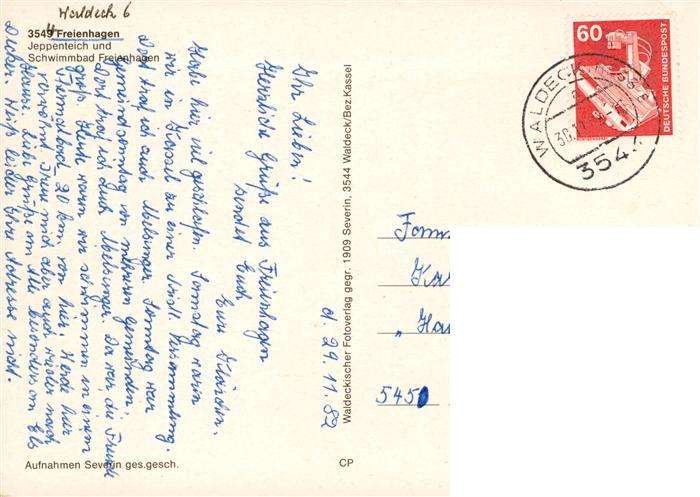 Waldeck 6
3549 Freienhagen
4
Jeppenteich und
Schwimmbad Freienhagen
Ihr Lieben!
Herzliche Grüße aus Freienhagen
sendet Euch
Eure
Habe hier viel geschlafen. Samstag waren
wir in Kassel zu einer Versammlung.
Dort traf ich auch Melsunger. Sonntag war
Gemeindesonntag von mehreren Gemeinden.
Dort traf ich auch Melsunger. Da war die Freude
groß. Heute waren wir schwimmen in einem
20 km von hier. Werde hier
verwöhnt. Freue mich aber auch wieder nach
Hause. Liebe Grüße an Alle besonders an Els
Dieter. Weiß leider Ihre Adresse nicht.
d. 29.11.82
Waldeckischer Fotoverlag gegr. 1909 Severin, 3544 Waldeck/Bez.Kassel
Aufnahmen Severin ges.gesch.
CP
60
DEUTSCHE BUNDESPOST
WALDECK
354
Fam
Ka
"Ha
5450